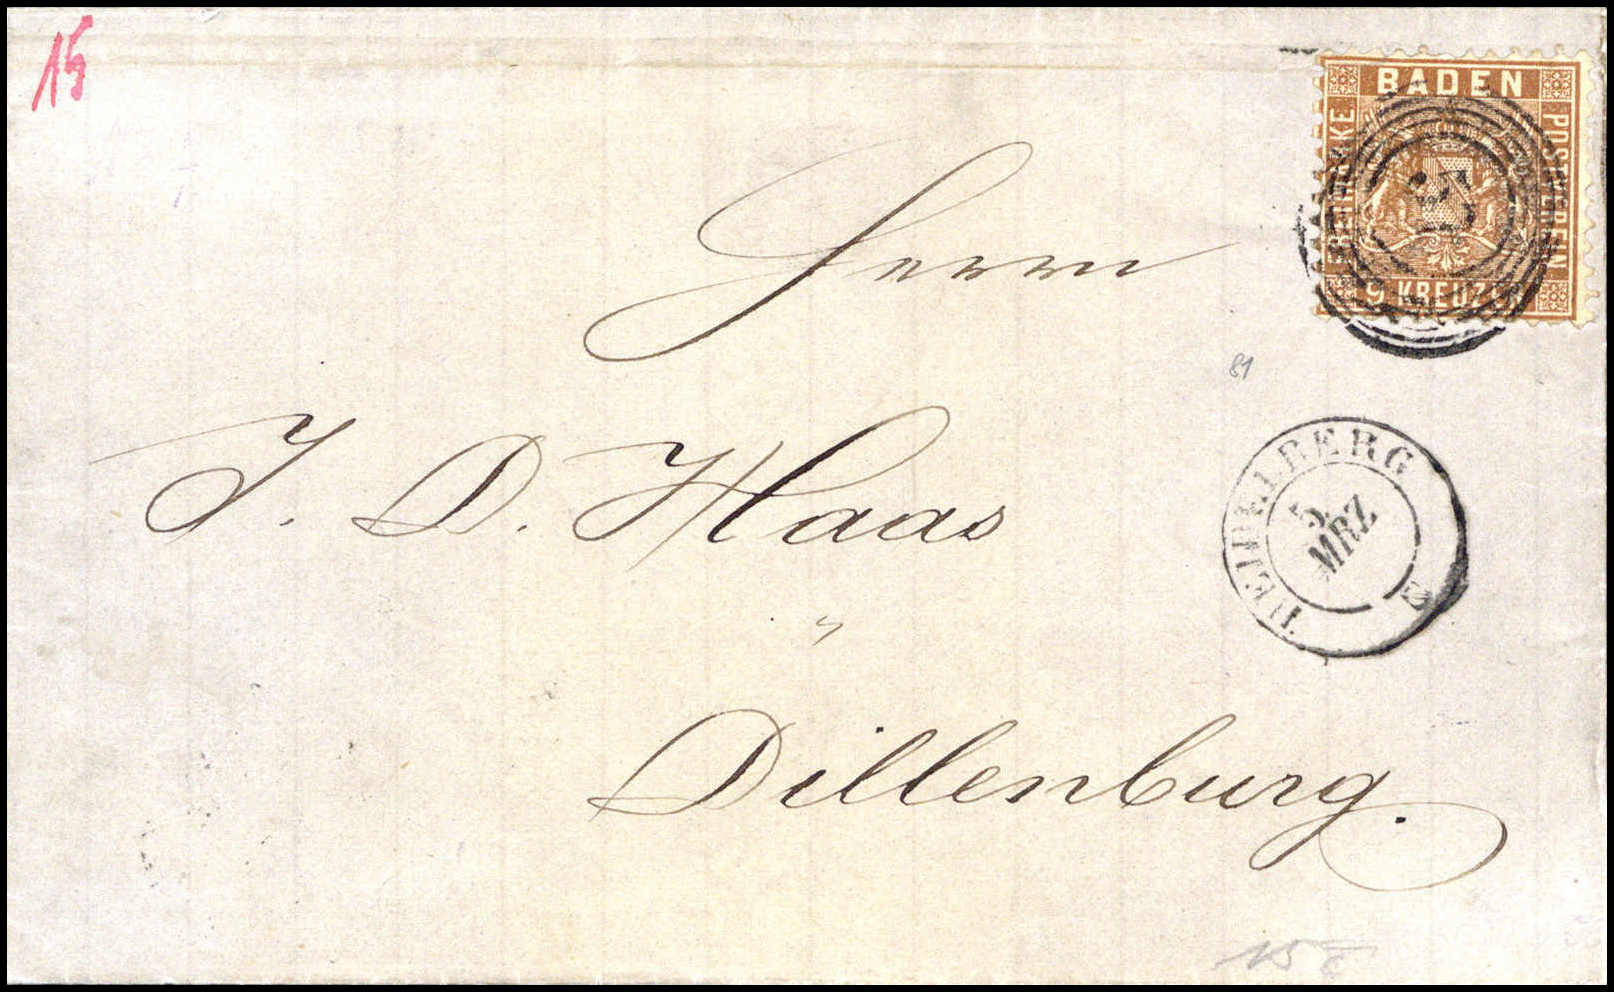 15
BADEN
FREIMARKE
POSTVEREIN
9 KREUZER
Herrn
81
J. D. Haas
HEIDELBERG
5.
MRZ
Dillenburg.